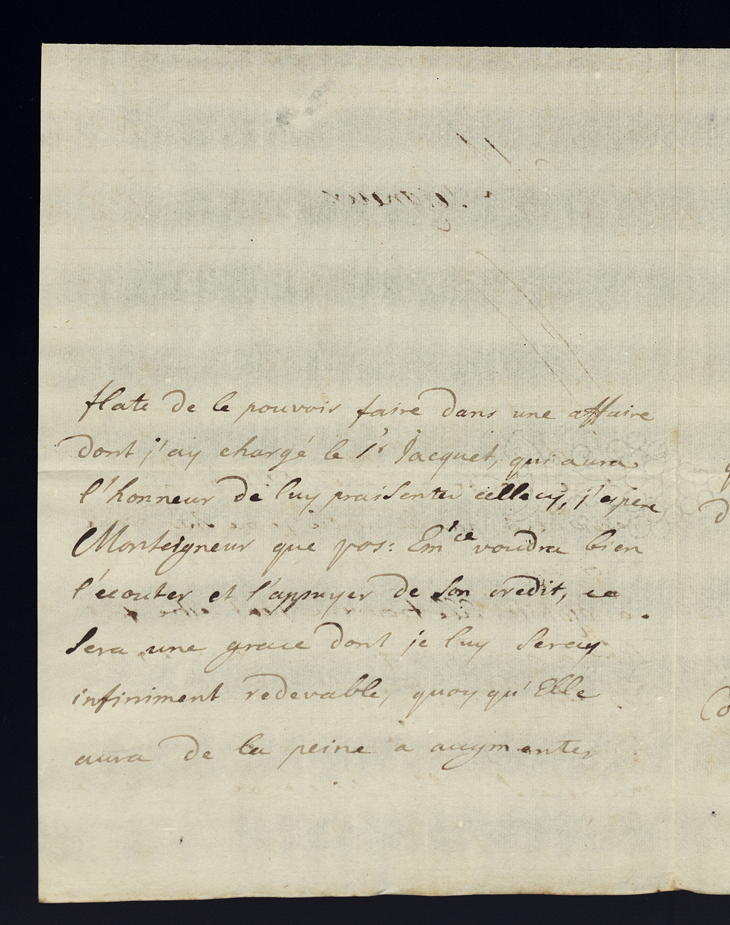 flate de le pouvoir faire dans une affaire
dont j'ay chargé le Sr Jacquet, qui aura
l'honneur de luy praisenter cellecy, j'espere
Monseigneur que vos: Emce voudra bien
l'écouter et l'appuyer de son credit, ce
sera une grace dont je luy seray
infiniment redevable, quoy qu'Elle
aura de la peine a augmenter